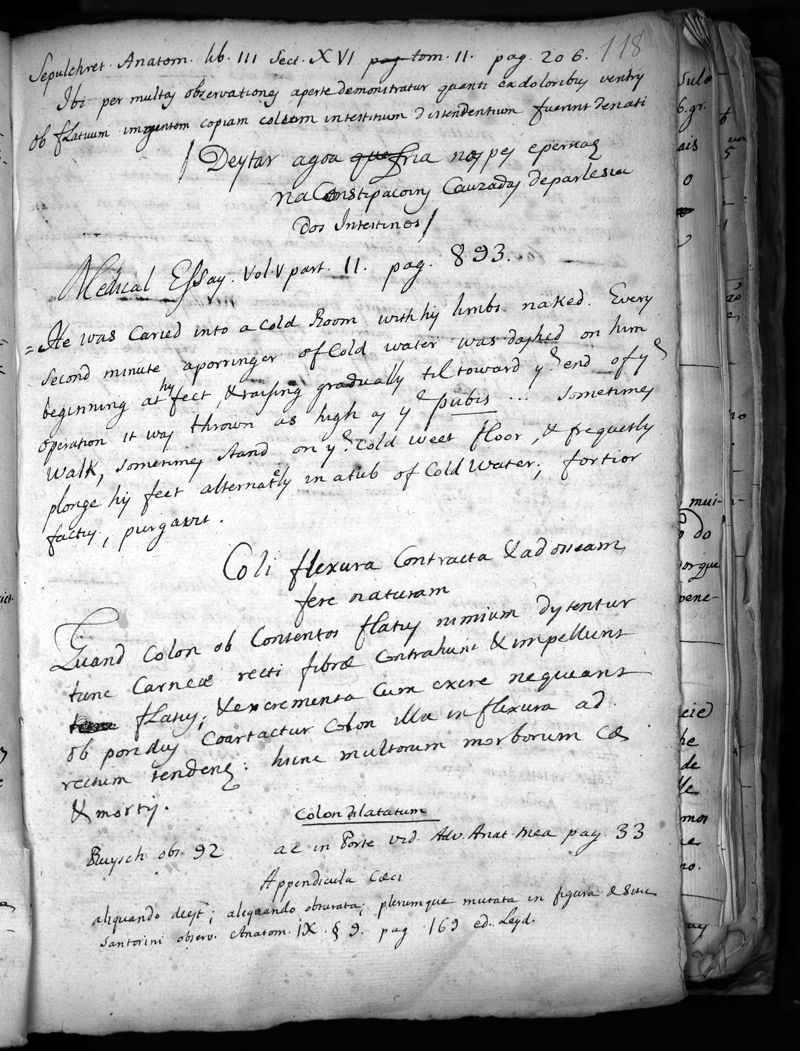 118
Sepulchret. Anatom. lib. III Sect. XVI pag tom. II. pag. 206.
Ibi per multas observationes aperte demonstratur quanti ex doloribus ventris
ob flatuum ingentem copiam colum intestinum distendentium fuerint denati
/ Deytar agoa que fria nos pes e pernas
na Constipacoins Cauzadas de parlesia
dos Intestinos /
Medical Essay. Vol. V part. II. pag. 893.
= He was Caried into a Cold Room with his limbs naked. Every
second minute a porringer of Cold water was dashed on him
beginning at his feet, & raising gradually til toward ye end of ye
operation it was thrown as high as ye pubis ... sometimes
walk, sometimes stand on ye Cold weet floor, & frequetly
plonge his feet alternatly in a tub of Cold Water; fortior
factus, purgavit.
Coli flexura Contracta & ad osseam
fere naturam
Quand Colon ob Contentos flatus nimium dystentur
tunc Carneæ recti fibræ contrahunt & impellunt
flatus; & excrementa Cum exire nequeant
ob pondus Coartactur Colon illa in flexura ad
rectum tendens: hinc multorum morborum Cæ
& mortis.
Colon dilatatum
Ruysch obs. 92 ac in Porte vid. Adv. Anat. mea pag 33
Appendicula Cæci
aliquando deest; aliquando obturata; plerumque mutata in figura & situ
Santorini observ. Anatom. IX. § 9. pag 169 ed. Leyd.